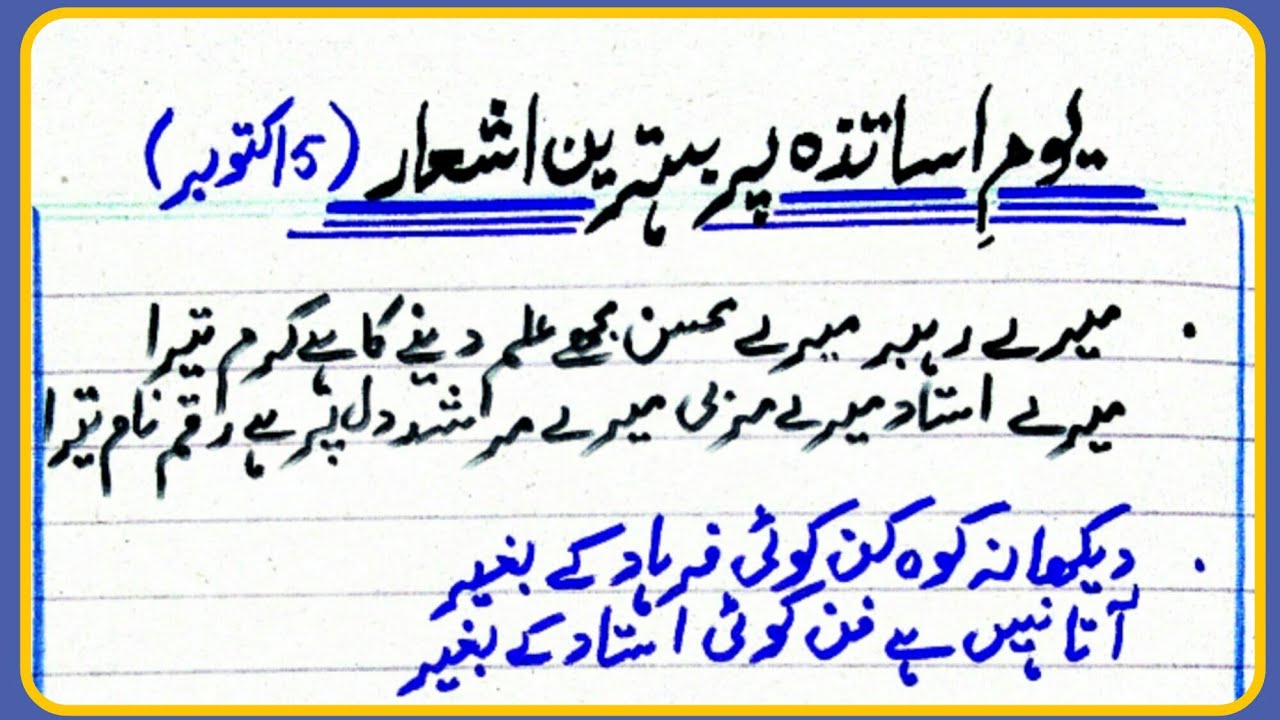 یومِ اساتذہ پر بہترین اشعار (5 اکتوبر)
۔ میرے رہبر میرے محسن مجھے علم دینے کا ہے کرم تیرا
میرے استاد میرے مربی میرے مرشد دل پر ہے رقم نام تیرا
۔ دیکھا نہ کوہ کن کوئی فرہاد کے بغیر
آتا نہیں ہے فن کوئی استاد کے بغیر